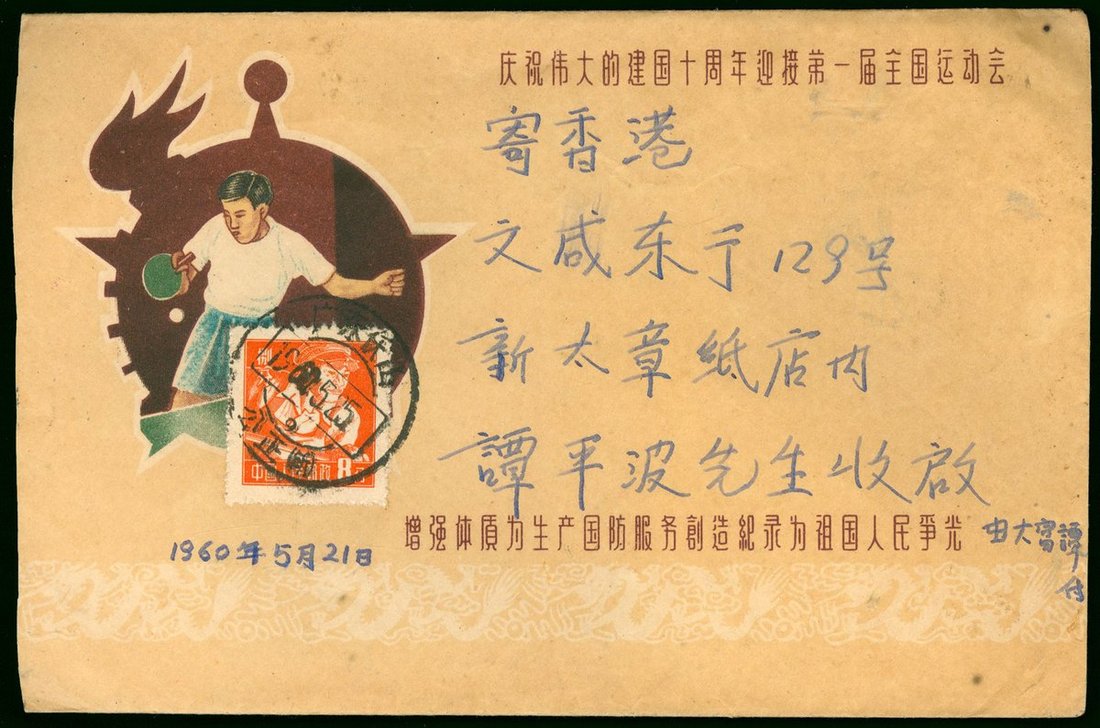 庆祝伟大的建国十周年迎接第一届全国运动会
寄香港
文咸东亍129号
新太章紙店内
譚平波先生收啟
增强体質为生产国防服务創造紀录为祖国人民爭光
由大寄譚付
1960年5月21日
1960.5.25
中国人民邮政 8